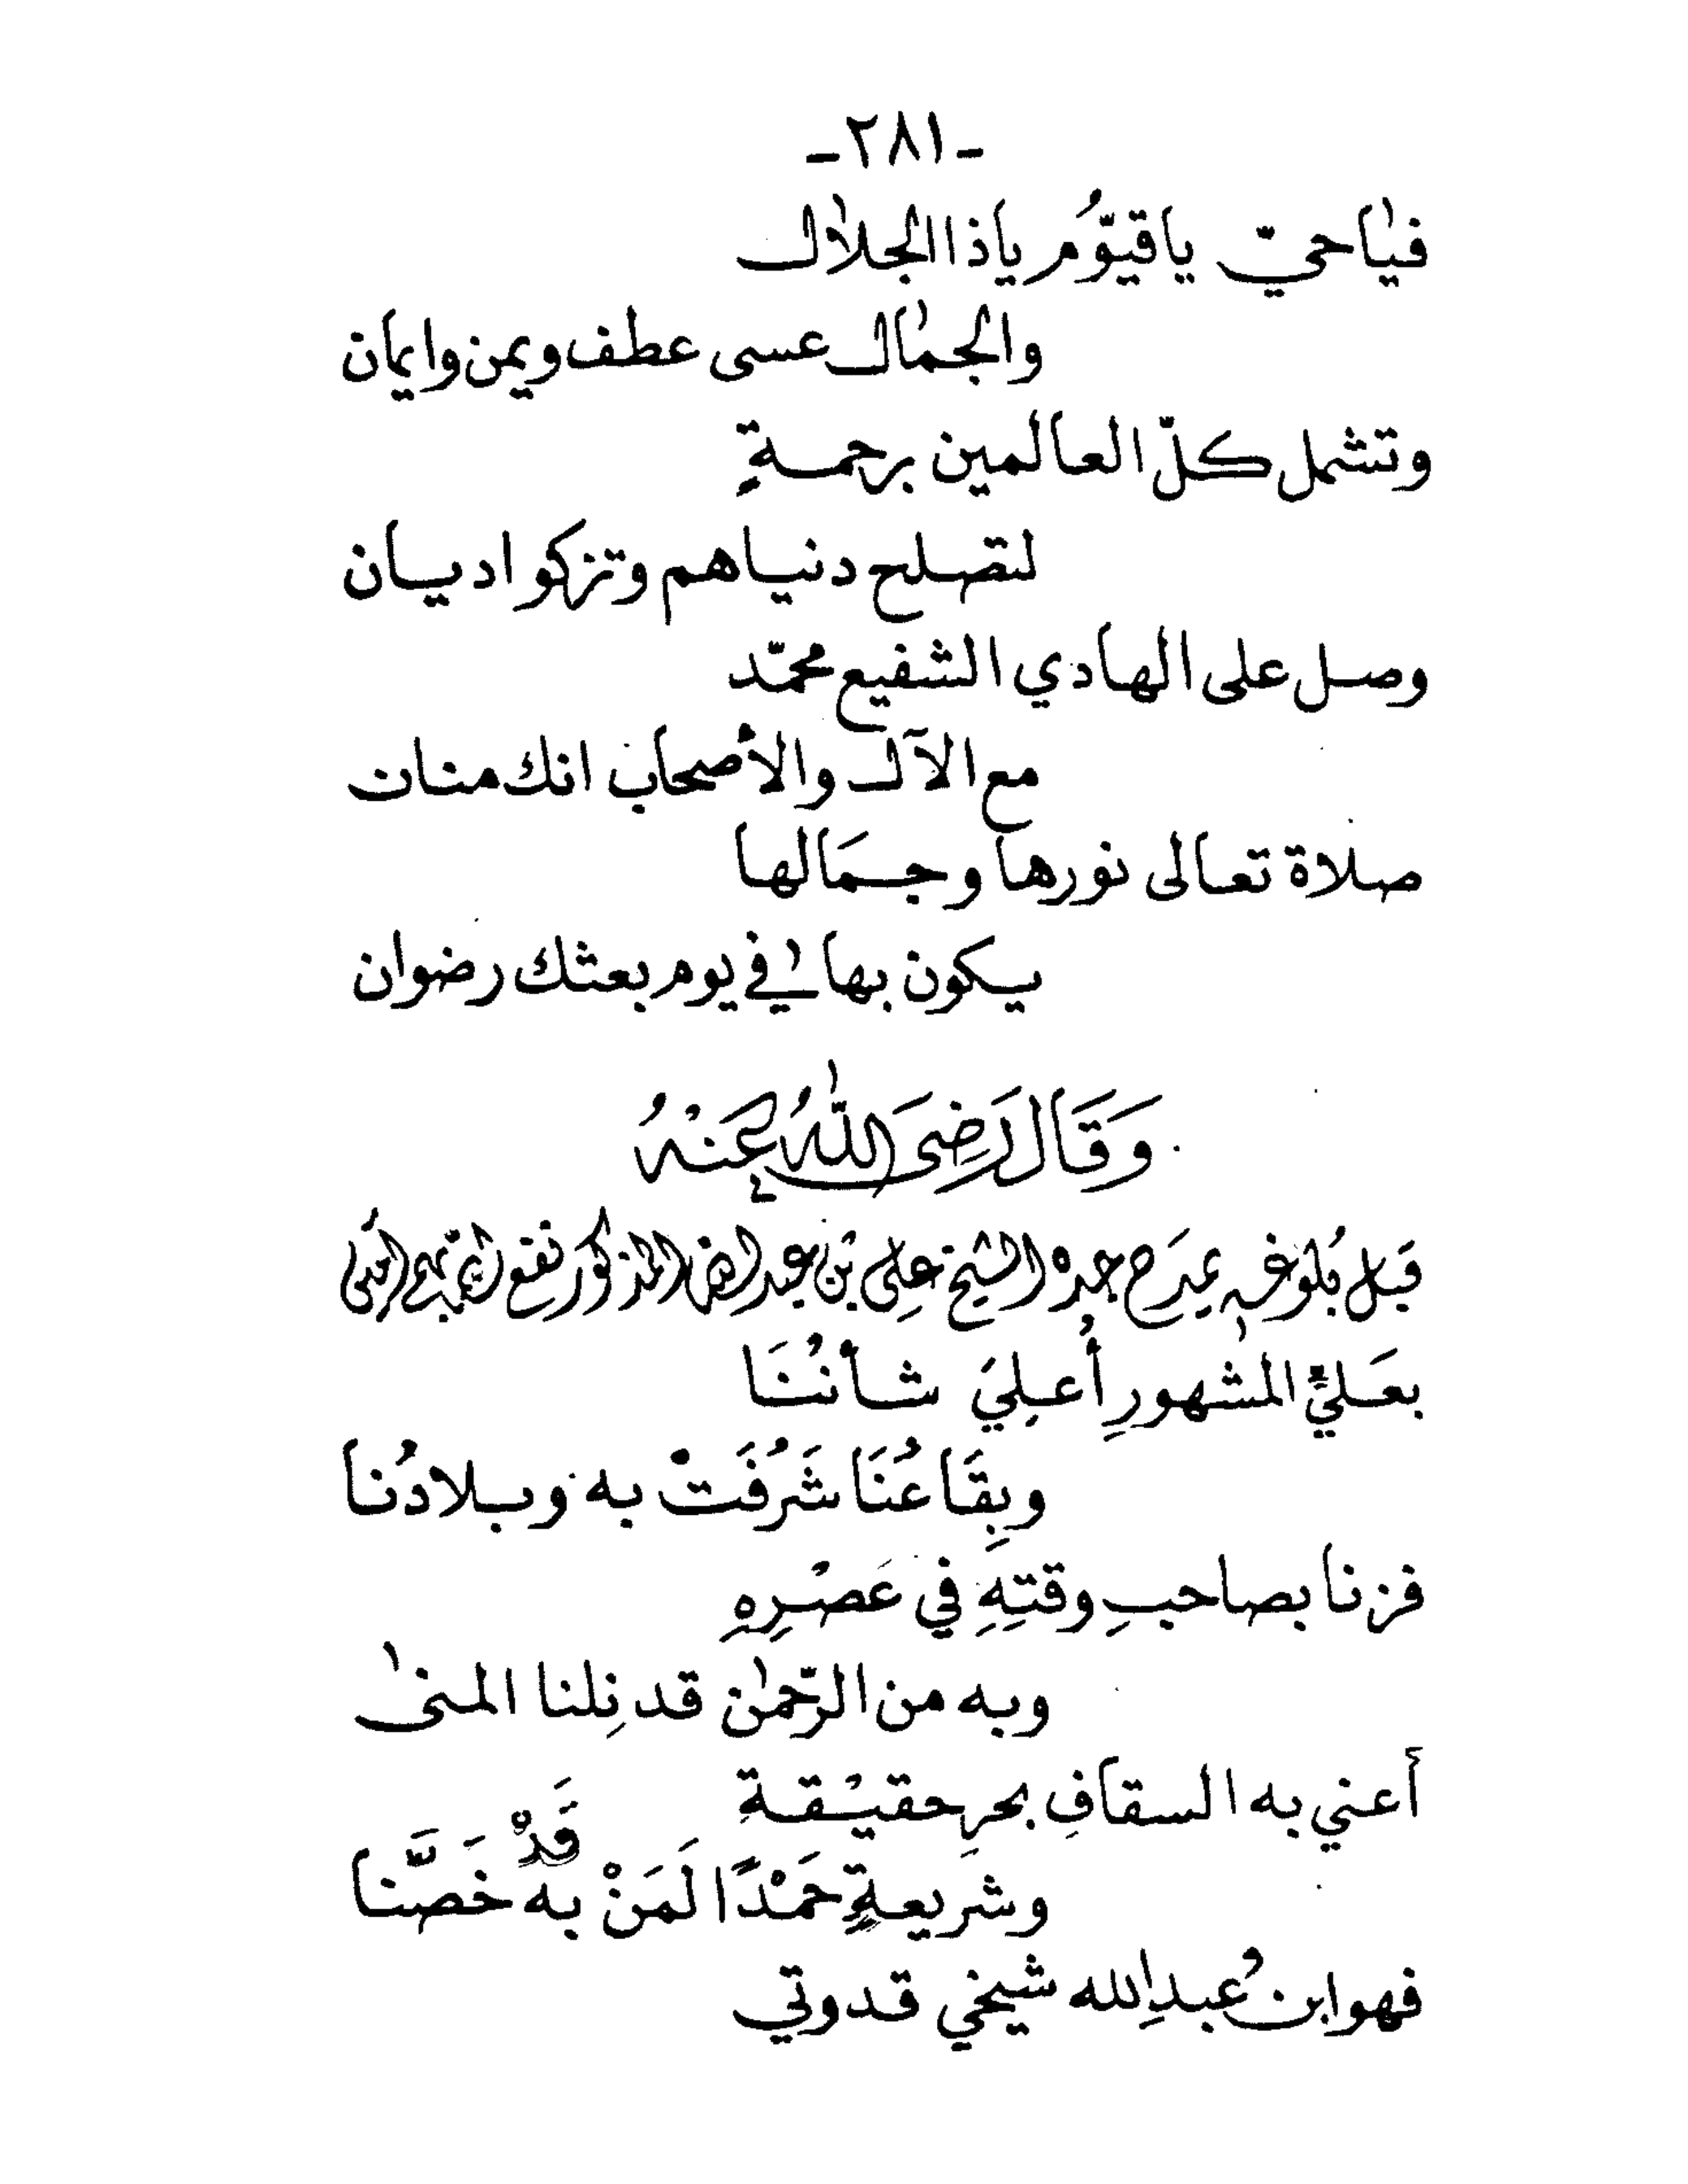 -٢٨١-
فيٰاحيّ ياقيّوُم ياذا الجلاٰل
والجمٰال عسى عطف ويمن وايمان
وتشمل كلّ العالمين برحمةٍ
لتصلح دنياهم وتزكو اديان
وصل على الهادي الشفيع محمّد
مع الآل والأصحاب انك منان
صلاة تعالى نورها وجمَالها
يكون بها لي في يوم بعثك رضوان
وَقَال رَضِىَ اللّٰهُ عَنْهُ
قبل بُلوغه يمدَح جده الشيخ علي بْن عبد الله المذكور نفع الله بهم آمين
بعَليٍّ المشْهورِ أُعلِيَ شأنُنَا
وبِقَاعُنَا شَرُفَتْ به وبلادُنا
فزنا بصاحبِ وقتِهِ في عَصْرِهِ
وبه من الرّحمٰن قد نِلنا المنىٰ
أعني به السقافِ بحرِ حقيْقةِ
وشريعةٍ حَمْدًا لَمَنْ به قَدْ خَصَّنا
فهو ابن عُبدِالله شيخي قدوتي